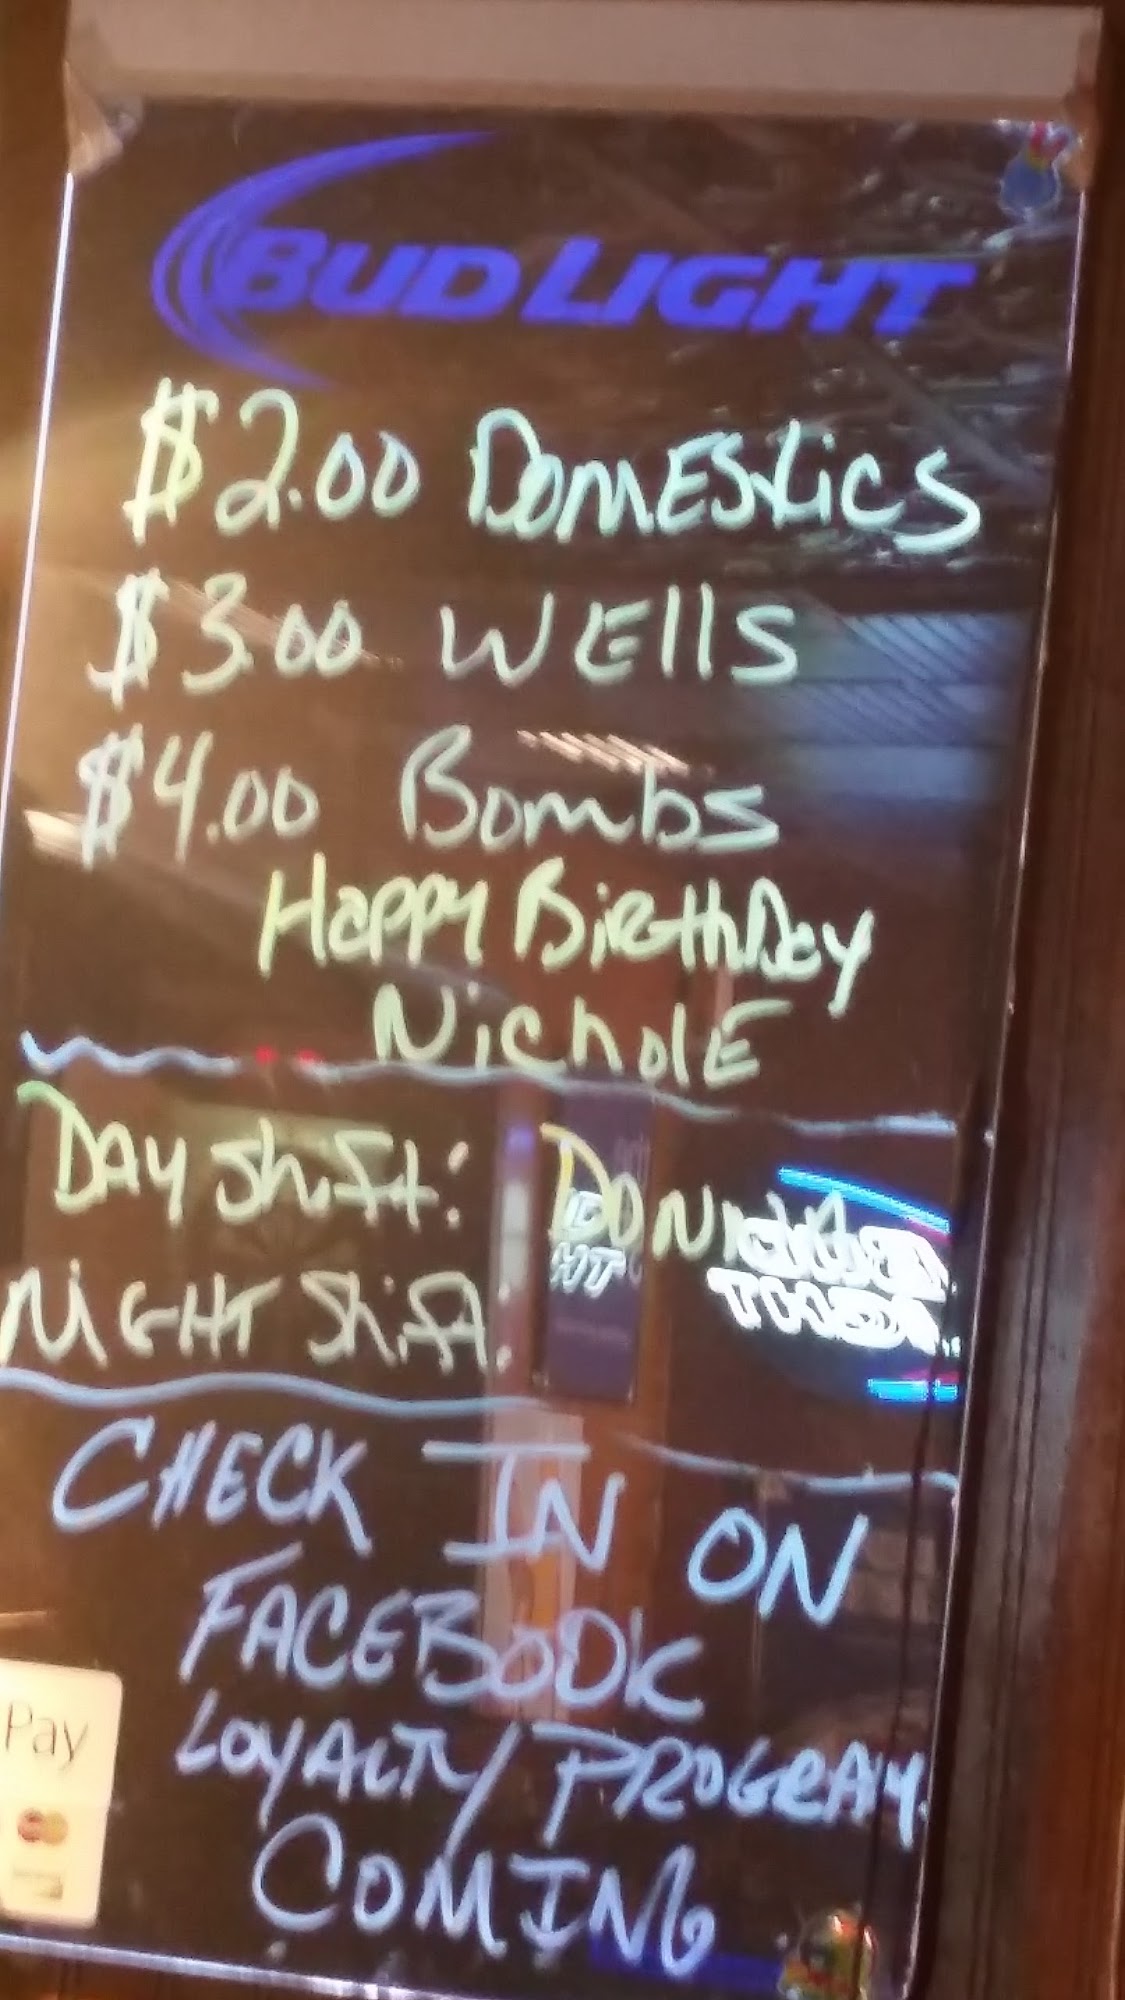 BUD LIGHT
$2.00 DOMEStiCS
$3.00 WEllS
$4.00 Bombs
Happy BiRthDay
NicholE
DAY Shift:
NiGHT Shift:
CHECK IN ON
FACEBOOK
LOYALTY PROGRAM
COMING
Pay